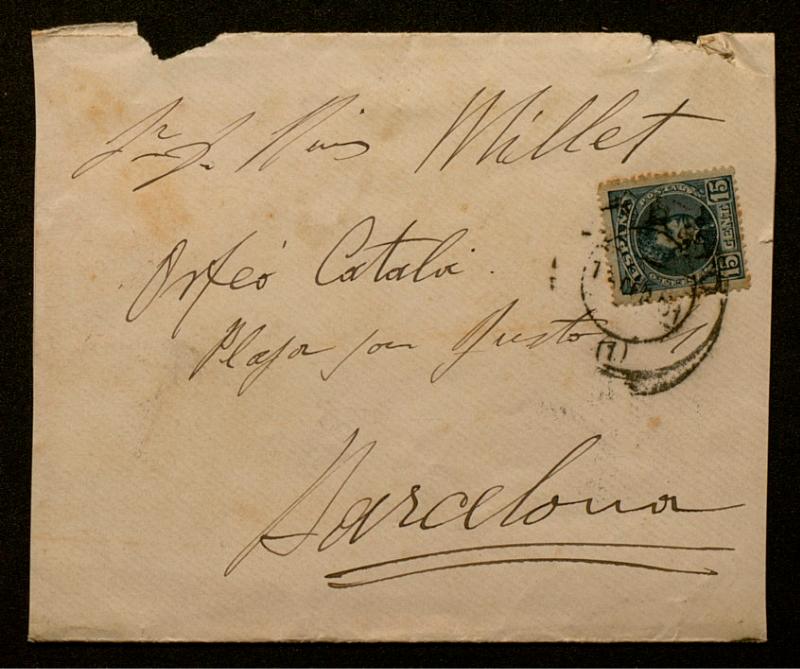 Sr. D. Lluis Millet
Orfeó Català.
Plaza San Justo
Barcelona
ESPAÑA
15 CENTS 15
(1)